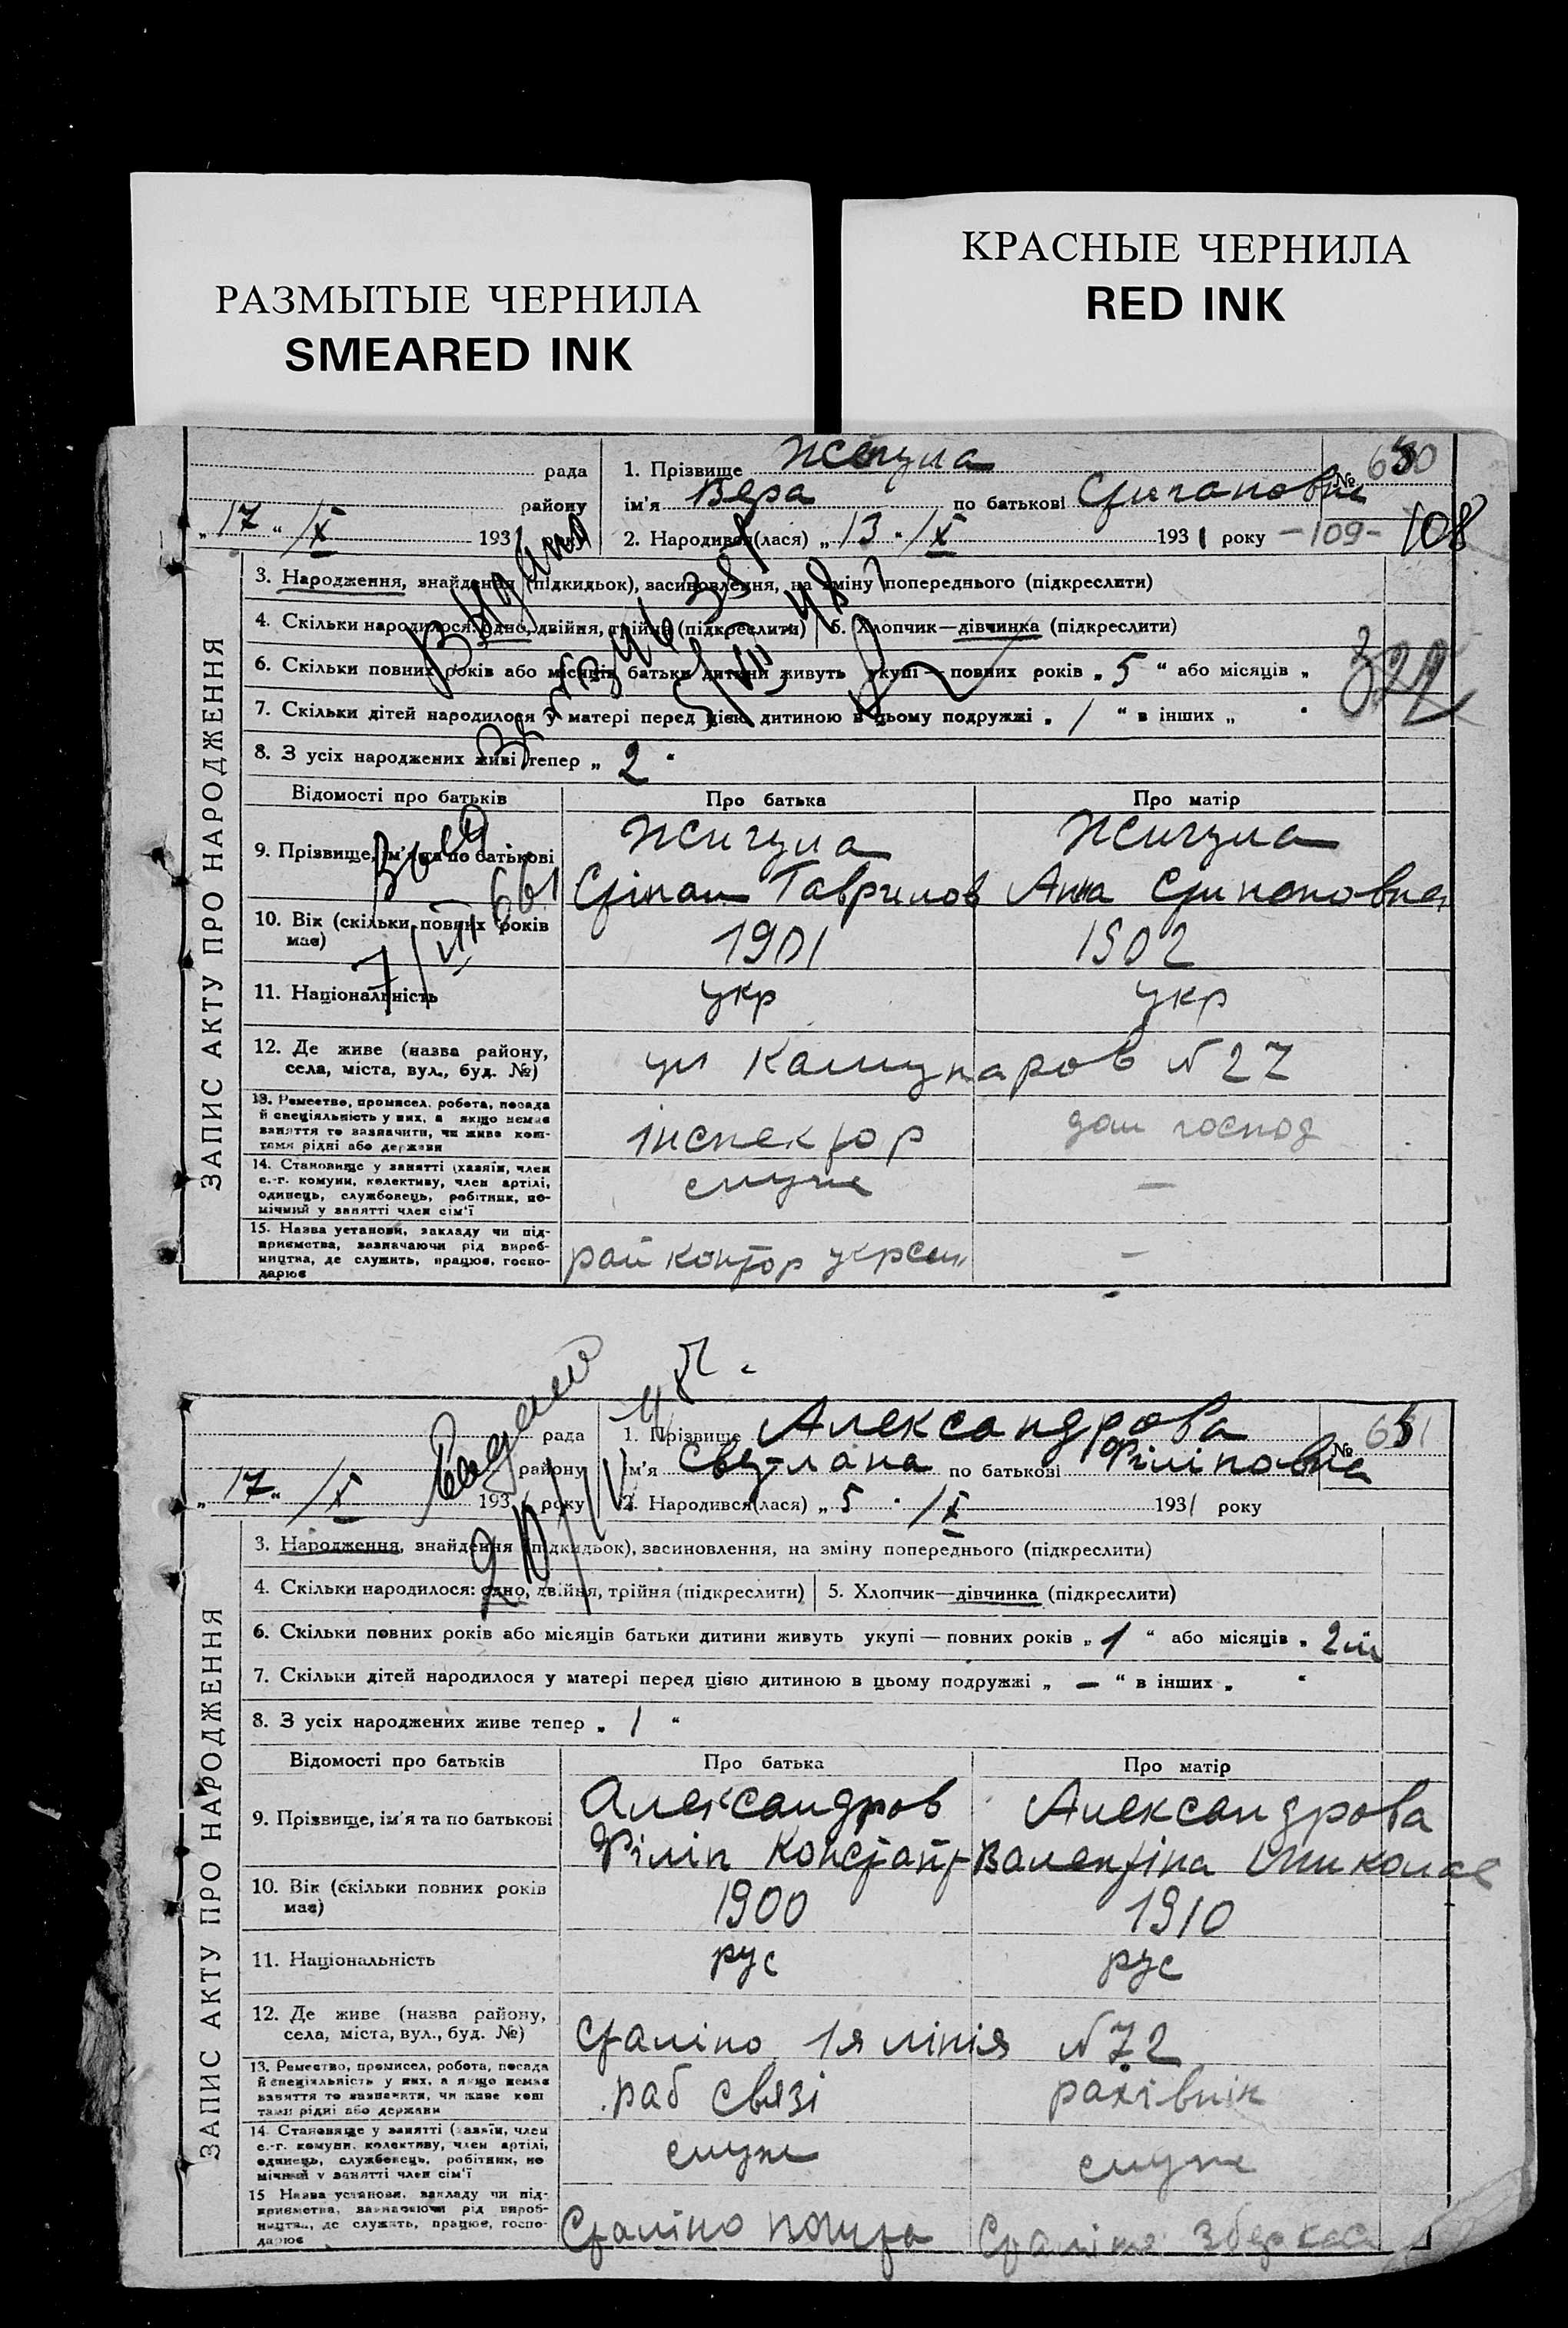 РАЗМЫТЫЕ ЧЕРНИЛА
SMEARED INK
КРАСНЫЕ ЧЕРНИЛА
RED INK
рада
району
„17“ /X 1931
1. Прізвище
№ 630
ім'я Вера по батькові
2. Народився(лася) „13“ /X 1931 року -109- 108
ЗАПИС АКТУ ПРО НАРОДЖЕННЯ
3. Народження, знайдення (підкидьок), засиновлення, на зміну попереднього (підкреслити)
4. Скільки народилося: одно, двійня, трійня (підкреслити) 5. Хлопчик—дівчинка (підкреслити)
6. Скільки повних років або місяців батьки дитини живуть укупі — повних років „5“ або місяців „
322
7. Скільки дітей народилося у матері перед цією дитиною в цьому подружжі „1“ в інших „ “
8. З усіх народжених живі тепер „2“
Відомості про батьків Про батька Про матір
9. Прізвище, ім'я та по батькові Жигула Жигула
Стіпан Гаврилов Анна
10. Вік (скільки повних років має) 1901 1902
11. Національність укр укр
12. Де живе (назва району, села, міста, вул., буд. №) ул Комунаров N 27
13. Ремество, промисел, робота, посада й спеціяльність у них, а якщо немає заняття то зазначити, чи живе коштами рідні або держави інспектор дом господ
14. Становище у занятті (хазяїн, член с.-г. комуни, колективу, член артілі, одинець, службовець, робітник, помічний у занятті член сім'ї служ —
15. Назва установи, закладу чи підприємства, зазначаючи рід виробництва, де служить, працює, господарює рай контор —
рада
району
„17“ /X 193 року
1. Прізвище Александрова
№ 631
ім'я Светлана по батькові Філіповна
2. Народився(лася) „5“ /X 1931 року
ЗАПИС АКТУ ПРО НАРОДЖЕННЯ
3. Народження, знайдення (підкидьок), засиновлення, на зміну попереднього (підкреслити)
4. Скільки народилося: одно, двійня, трійня (підкреслити) 5. Хлопчик—дівчинка (підкреслити)
6. Скільки повних років або місяців батьки дитини живуть укупі — повних років „1“ або місяців „2 м
7. Скільки дітей народилося у матері перед цією дитиною в цьому подружжі „—“ в інших „ “
8. З усіх народжених живе тепер „1“
Відомості про батьків Про батька Про матір
9. Прізвище, ім'я та по батькові Александров Александрова
Філіп Констант Валентіна Николае
10. Вік (скільки повних років має) 1900 1910
11. Національність рус рус
12. Де живе (назва району, села, міста, вул., буд. №) Сталіно 1я лінія N 72
13. Ремество, промисел, робота, посада й спеціяльність у них, а якщо немає заняття то зазначити, чи живе коштами рідні або держави раб связі рахівнік
14. Становище у занятті (хазяїн, член с.-г. комуни, колективу, член артілі, одинець, службовець, робітник, помічний у занятті член сім'ї служ служ
15 Назва установи, закладу чи підприємства, зазначаючи рід виробництва, де служить, працює, господарює Сталіно пошта Сталіно